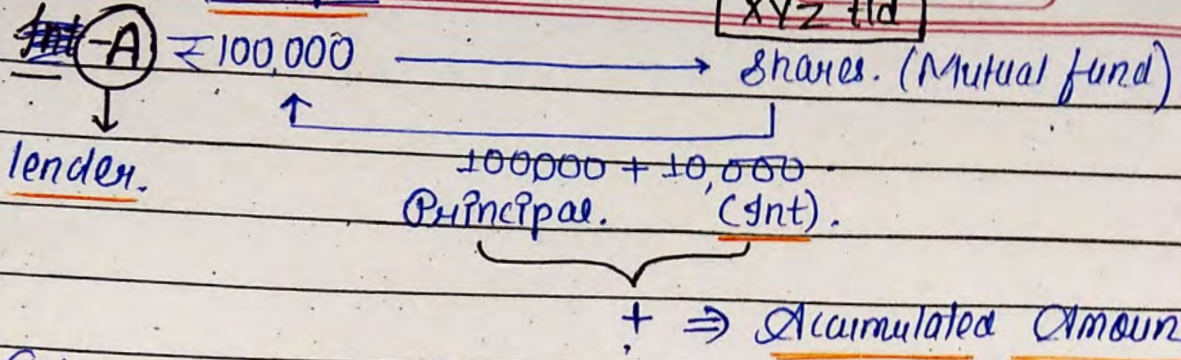 XYZ ltd
-A ₹100,000 → Shares. (Mutual fund)
lender.
100000 + 10,000
Principal. (Int).
+ ⇒ Accumulated Amoun